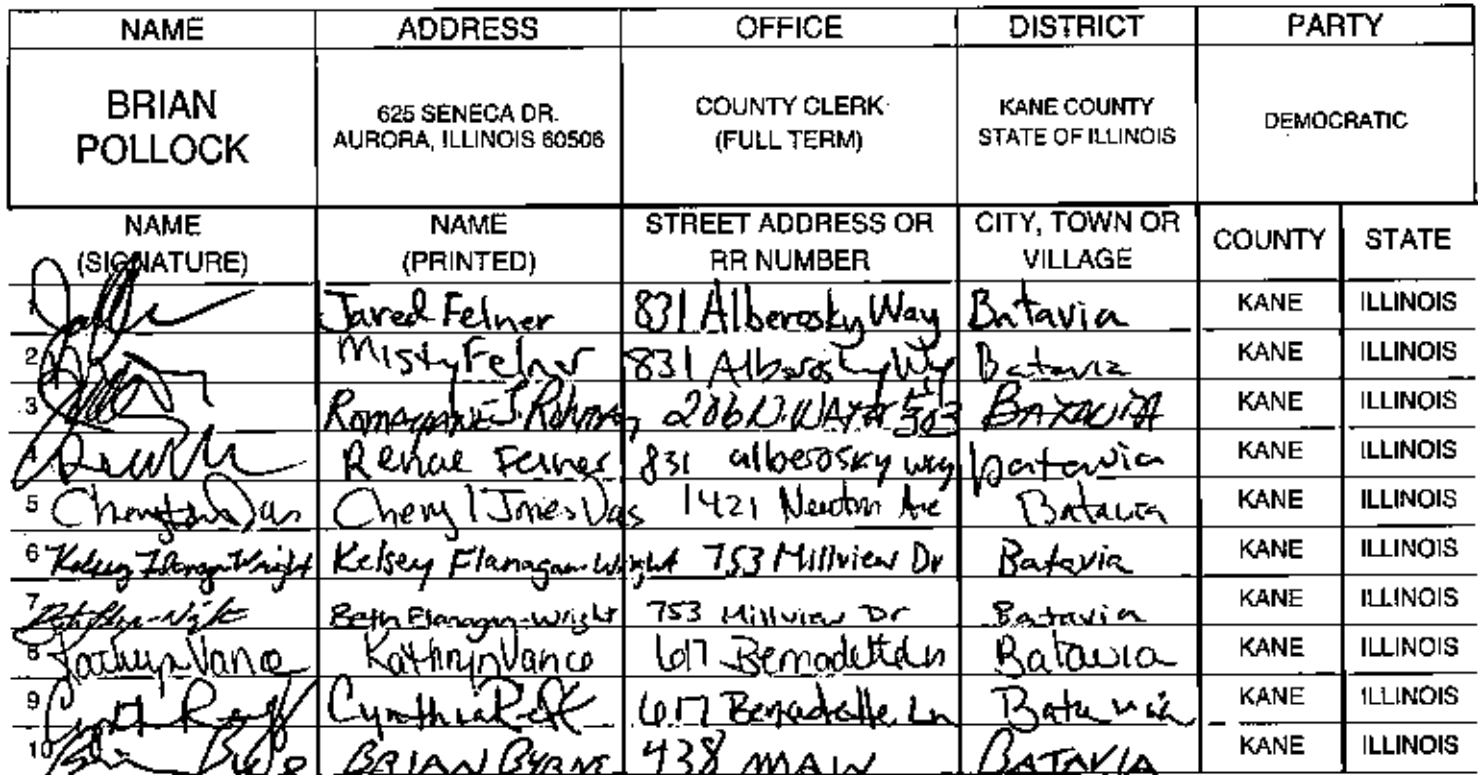 NAME ADDRESS OFFICE DISTRICT PARTY
BRIAN POLLOCK 625 SENECA DR. AURORA, ILLINOIS 60506 COUNTY CLERK (FULL TERM) KANE COUNTY STATE OF ILLINOIS DEMOCRATIC
NAME (SIGNATURE) NAME (PRINTED) STREET ADDRESS OR RR NUMBER CITY, TOWN OR VILLAGE COUNTY STATE
1 Jared Felner 831 Alberosky Way Batavia KANE ILLINOIS
2 Misty Felnr 831 Alberosky Wy Batavia KANE ILLINOIS
3 206 N. WATER 503 BATAVIA KANE ILLINOIS
4 Renae Felner 831 alberosky way batavia KANE ILLINOIS
5 Cheryl Jones Das 1421 Newton Ave Batavia KANE ILLINOIS
6 Kelsey Flanagan-Wright Kelsey Flanagan-Wright 753 Millview Dr Batavia KANE ILLINOIS
7 Beth Flanagan-Wright 753 Millview Dr Batavia KANE ILLINOIS
8 Kathryn Vance Kathryn Vance 617 Bernadette Ln Batavia KANE ILLINOIS
9 Cynthia 617 Bernadette Ln Batavia KANE ILLINOIS
10 BRIAN BYRNE 438 MAIN BATAVIA KANE ILLINOIS